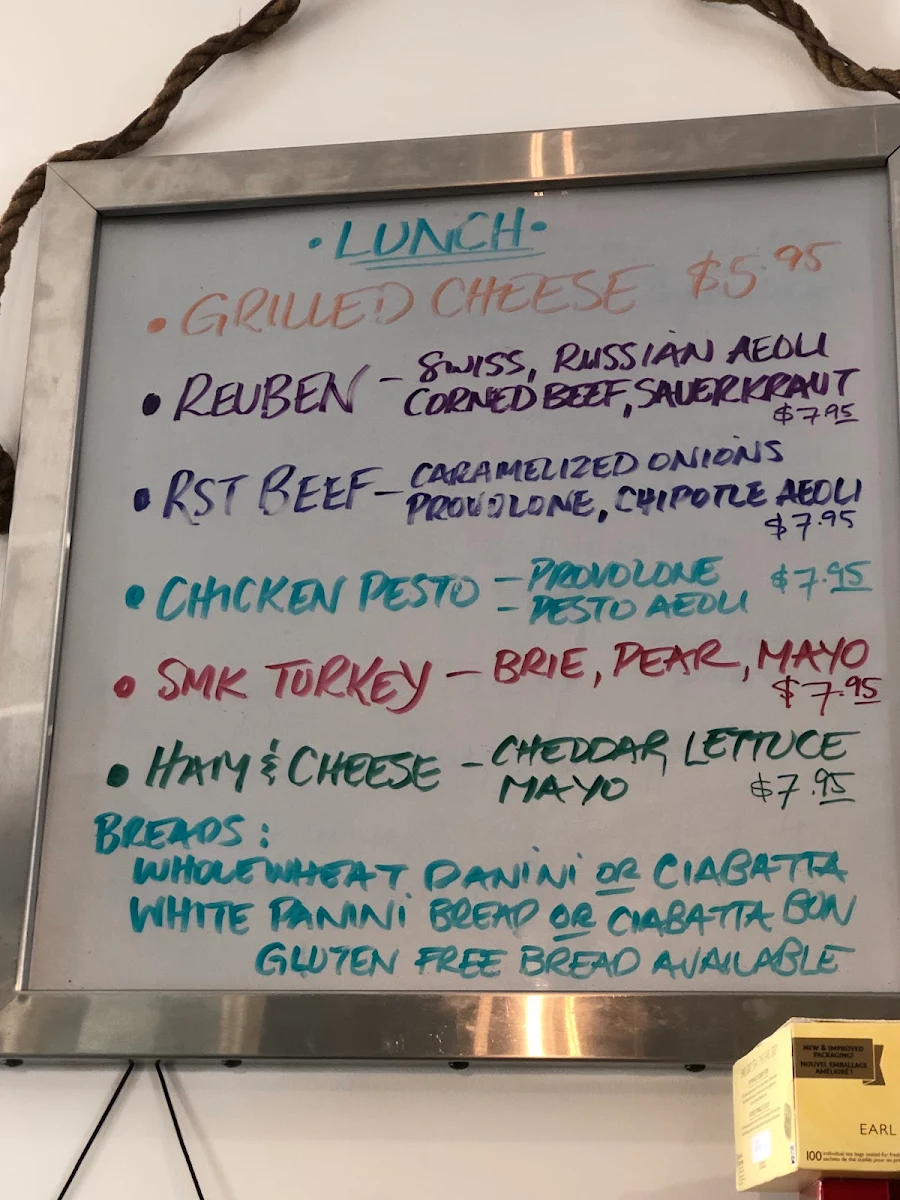 • LUNCH •
• GRILLED CHEESE $5.95
• REUBEN - SWISS, RUSSIAN AEOLI
CORNED BEEF, SAUERKRAUT
$7.95
• RST BEEF - CARAMELIZED ONIONS
PROVOLONE, CHIPOTLE AEOLI
$7.95
• CHICKEN PESTO - PROVOLONE $7.95
- PESTO AEOLI
• SMK TURKEY - BRIE, PEAR, MAYO
$7.95
• HAM & CHEESE - CHEDDAR LETTUCE
MAYO $7.95
BREADS:
WHOLEWHEAT PANINI OR CIABATTA
WHITE PANINI BREAD OR CIABATTA BUN
GLUTEN FREE BREAD AVAILABLE
NEW & IMPROVED
PACKAGING!
NOUVEL EMBALLAGE
AMÉLIORÉ!
EARL
100 individual tea bags sealed for
sachets de thé